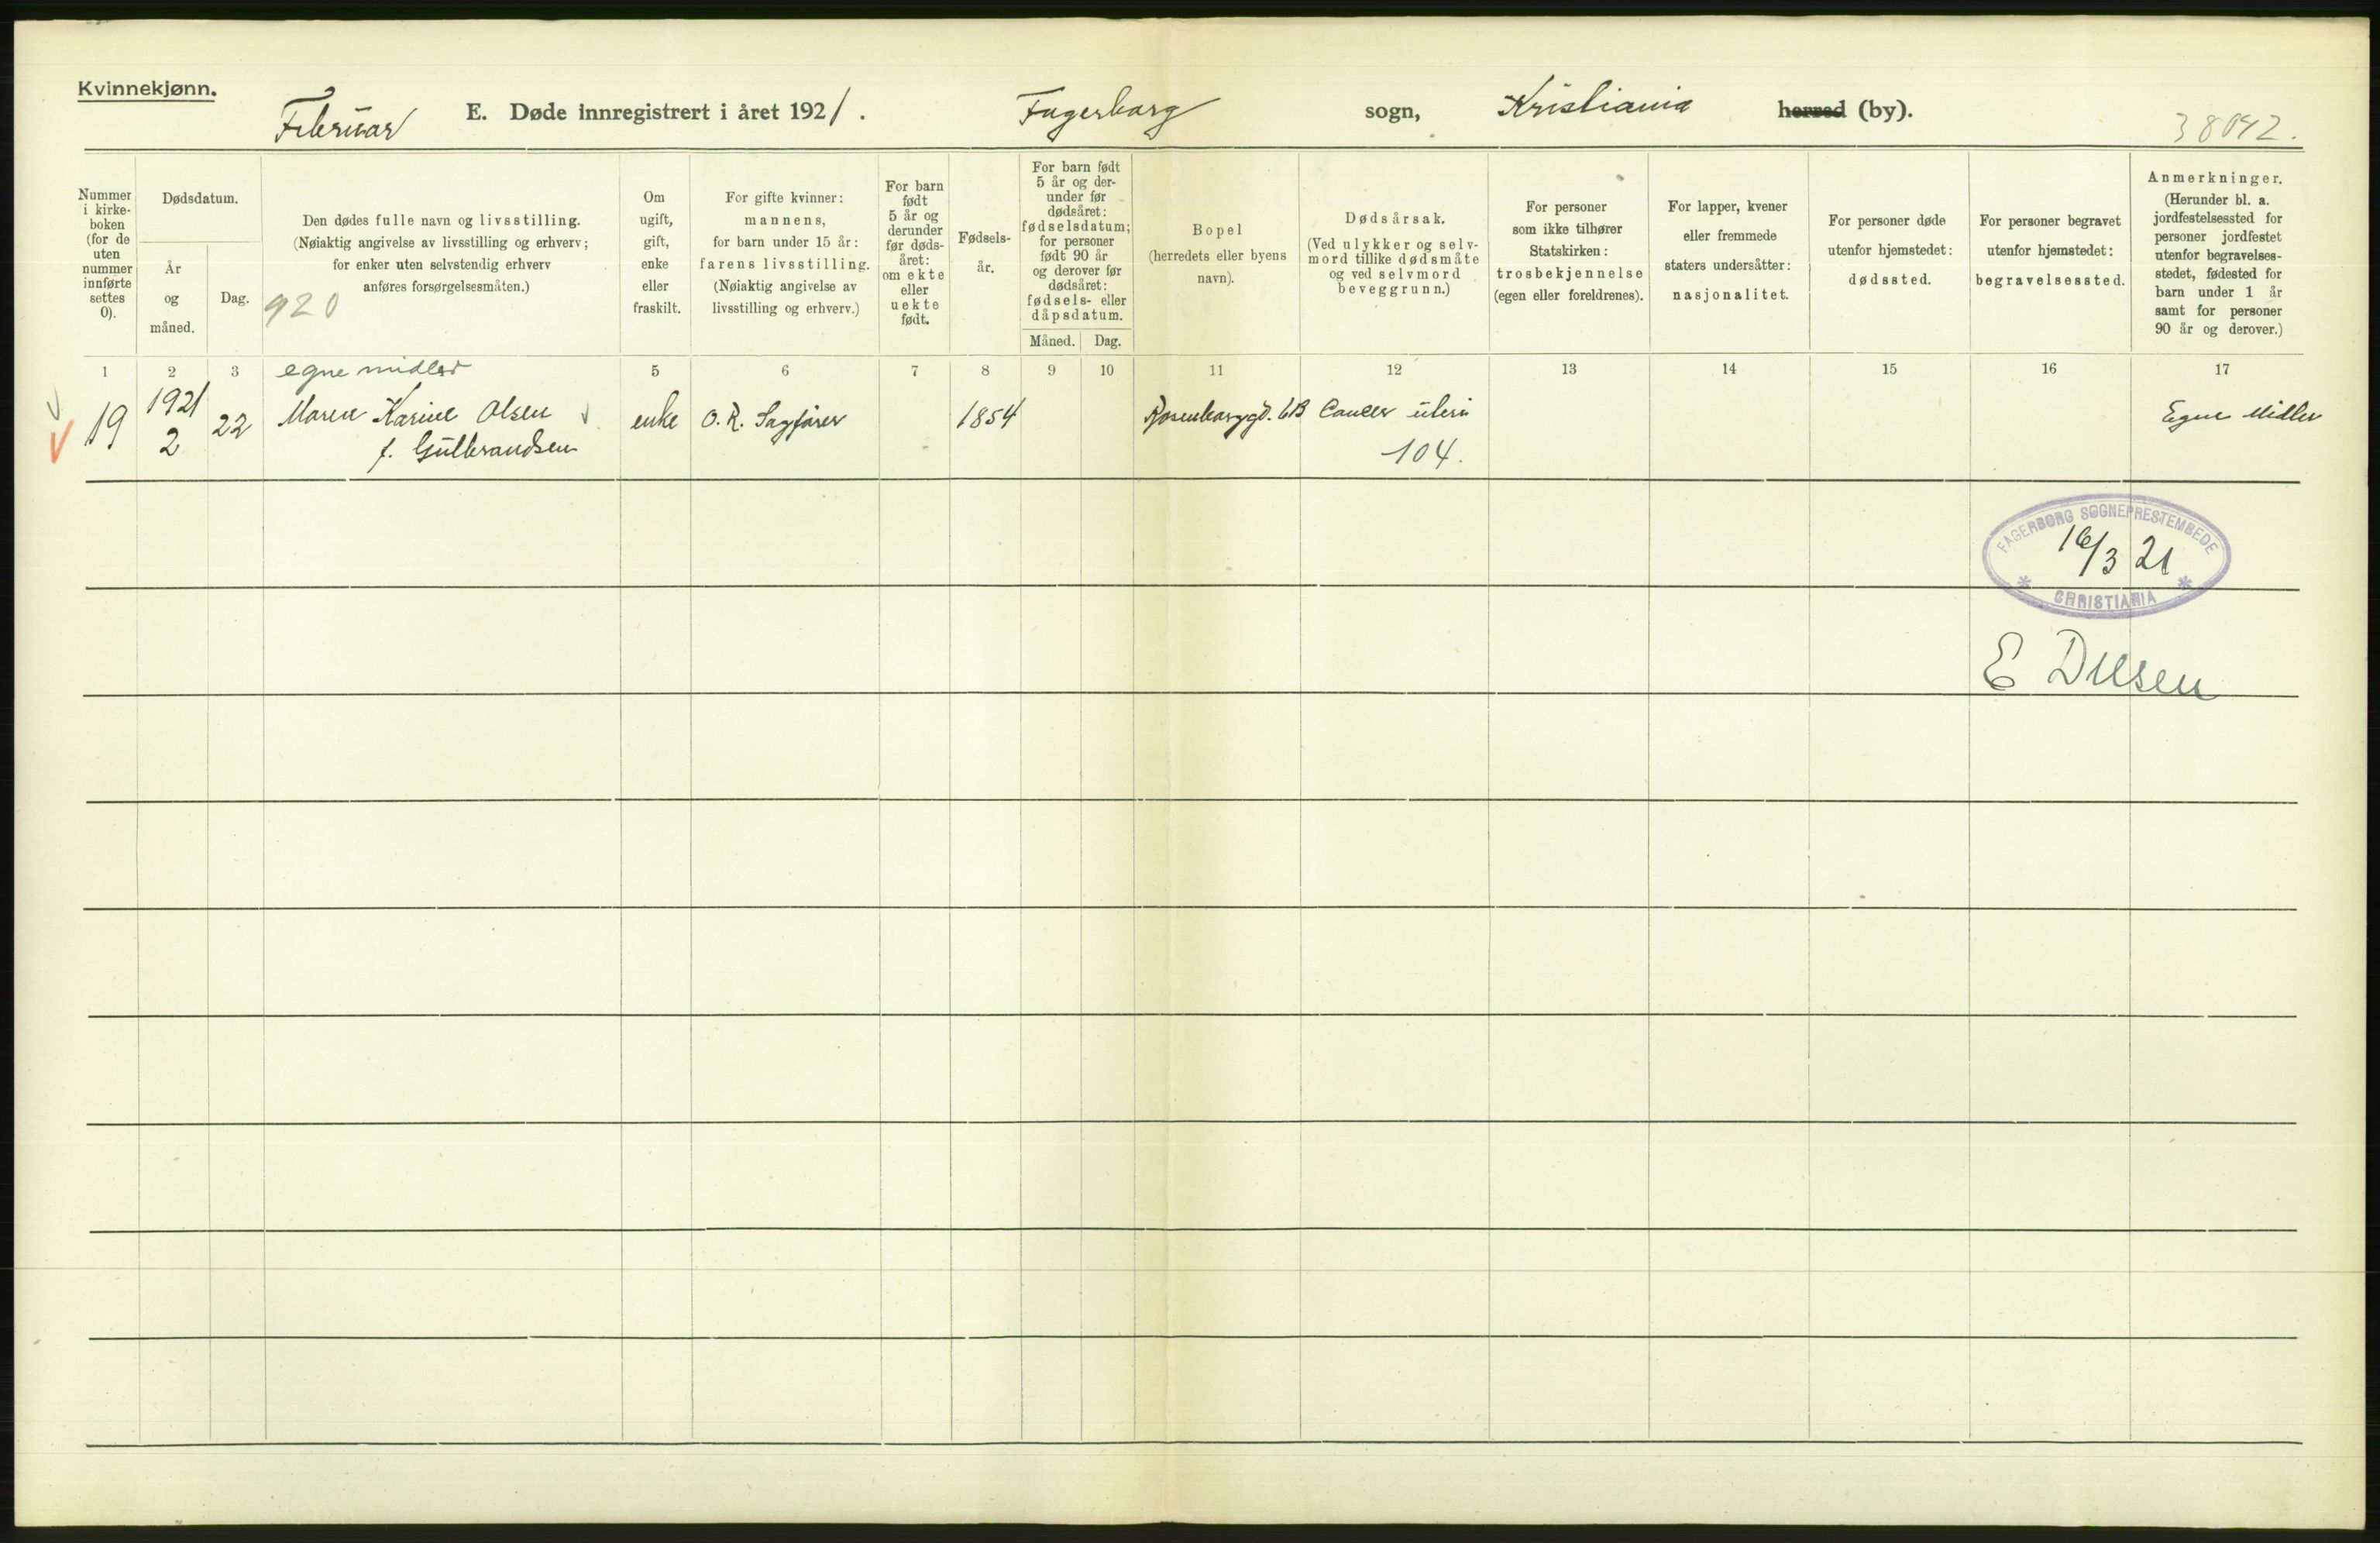 Kvinnekjønn.
Februar E. Døde innregistrert i året 1921. Fagerborg sogn, Kristiania herred (by).
38042.
Nummer i kirke-boken (for de uten nummer innførte settes 0).
Dødsdatum.
År og måned.
Dag.
Den dødes fulle navn og livsstilling.
(Nøiaktig angivelse av livsstilling og erhverv;
for enker uten selvstendig erhverv
anføres forsørgelsesmåten.)
920
Om ugift, gift, enke eller fraskilt.
For gifte kvinner:
mannens,
for barn under 15 år:
farens livsstilling.
(Nøiaktig angivelse av
livsstilling og erhverv.)
For barn født 5 år og derunder før døds-året: om ekte eller uekte født.
Fødsels-år.
For barn født 5 år og der-under før dødsåret: fødselsdatum; for personer født 90 år og derover før dødsåret: fødsels- eller dåpsdatum.
Måned. Dag.
Bopel
(herredets eller byens
navn).
Dødsårsak.
(Ved ulykker og selv-
mord tillike dødsmåte
og ved selvmord
beveggrunn.)
For personer
som ikke tilhører
Statskirken:
trosbekjennelse
(egen eller foreldrenes).
For lapper, kvener
eller fremmede
staters undersåtter:
nasjonalitet.
For personer døde
utenfor hjemstedet:
dødssted.
For personer begravet
utenfor hjemstedet:
begravelsessted.
Anmerkninger.
(Herunder bl. a.
jordfestelsessted for
personer jordfestet
utenfor begravelses-
stedet, fødested for
barn under 1 år
samt for personer
90 år og derover.)
1 2 3 egne midler 5 6 7 8 9 10 11 12 13 14 15 16 17
19 1921 2 22 Maren Karine Olsen enke O. R. Sagfører 1854 Rosenborggt. 6B Cancer uteri Egne Midler
f. Gulbrandsen 104.
FAGERBORG SOGNEPRESTEMBEDE
16/3 21
CHRISTIANIA